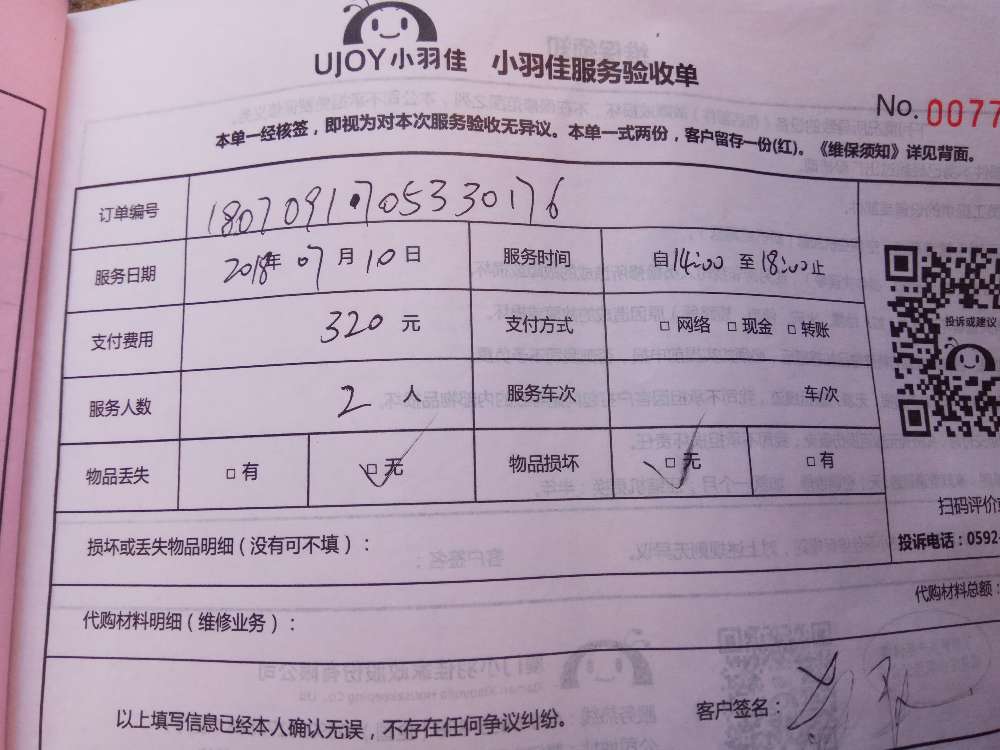 UJOY小羽佳 小羽佳服务验收单
No. 0077
本单一经核签，即视为对本次服务验收无异议。本单一式两份，客户留存一份(红)。《维保须知》详见背面。
订单编号 1807091705330176
服务日期 2018年 07月 10日 服务时间 自14:00 至18:00止
支付费用 320 元 支付方式 □ 网络 □ 现金 □ 转账
投诉或建议
服务人数 2 人 服务车次 车/次
物品丢失 □ 有 □ 无 物品损坏 □ 无 □ 有
扫码评价
损坏或丢失物品明细（没有可不填）：
投诉电话：0592-
代购材料明细（维修业务）： 代购材料总额：
以上填写信息已经本人确认无误，不存在任何争议纠纷。 客户签名：